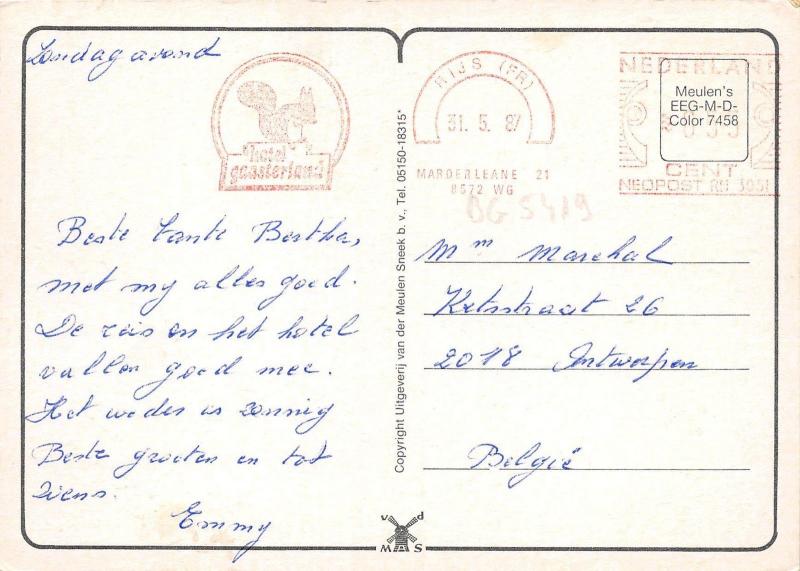 Zondag avond
hotel
gaasterland
RIJS (FR)
31. 5. 87
MARDERLEANE 21
8572 WG
NEDERLAND
CENT
NEOPOST RN 3051
Meulen's
EEG-M-D-
Color 7458
BG 5419
Beste tante Bertha,
met my alles goed.
De reis en het hotel
vallen goed mee.
Het weder is zonnig
Beste groeten en tot
ziens.
Emmy
Copyright Uitgeverij van der Meulen Sneek b. v., Tel. 05150-18315*
Mm Marchal
Ketsstraat 26
2018 Antwerpen
België
v d
MAS